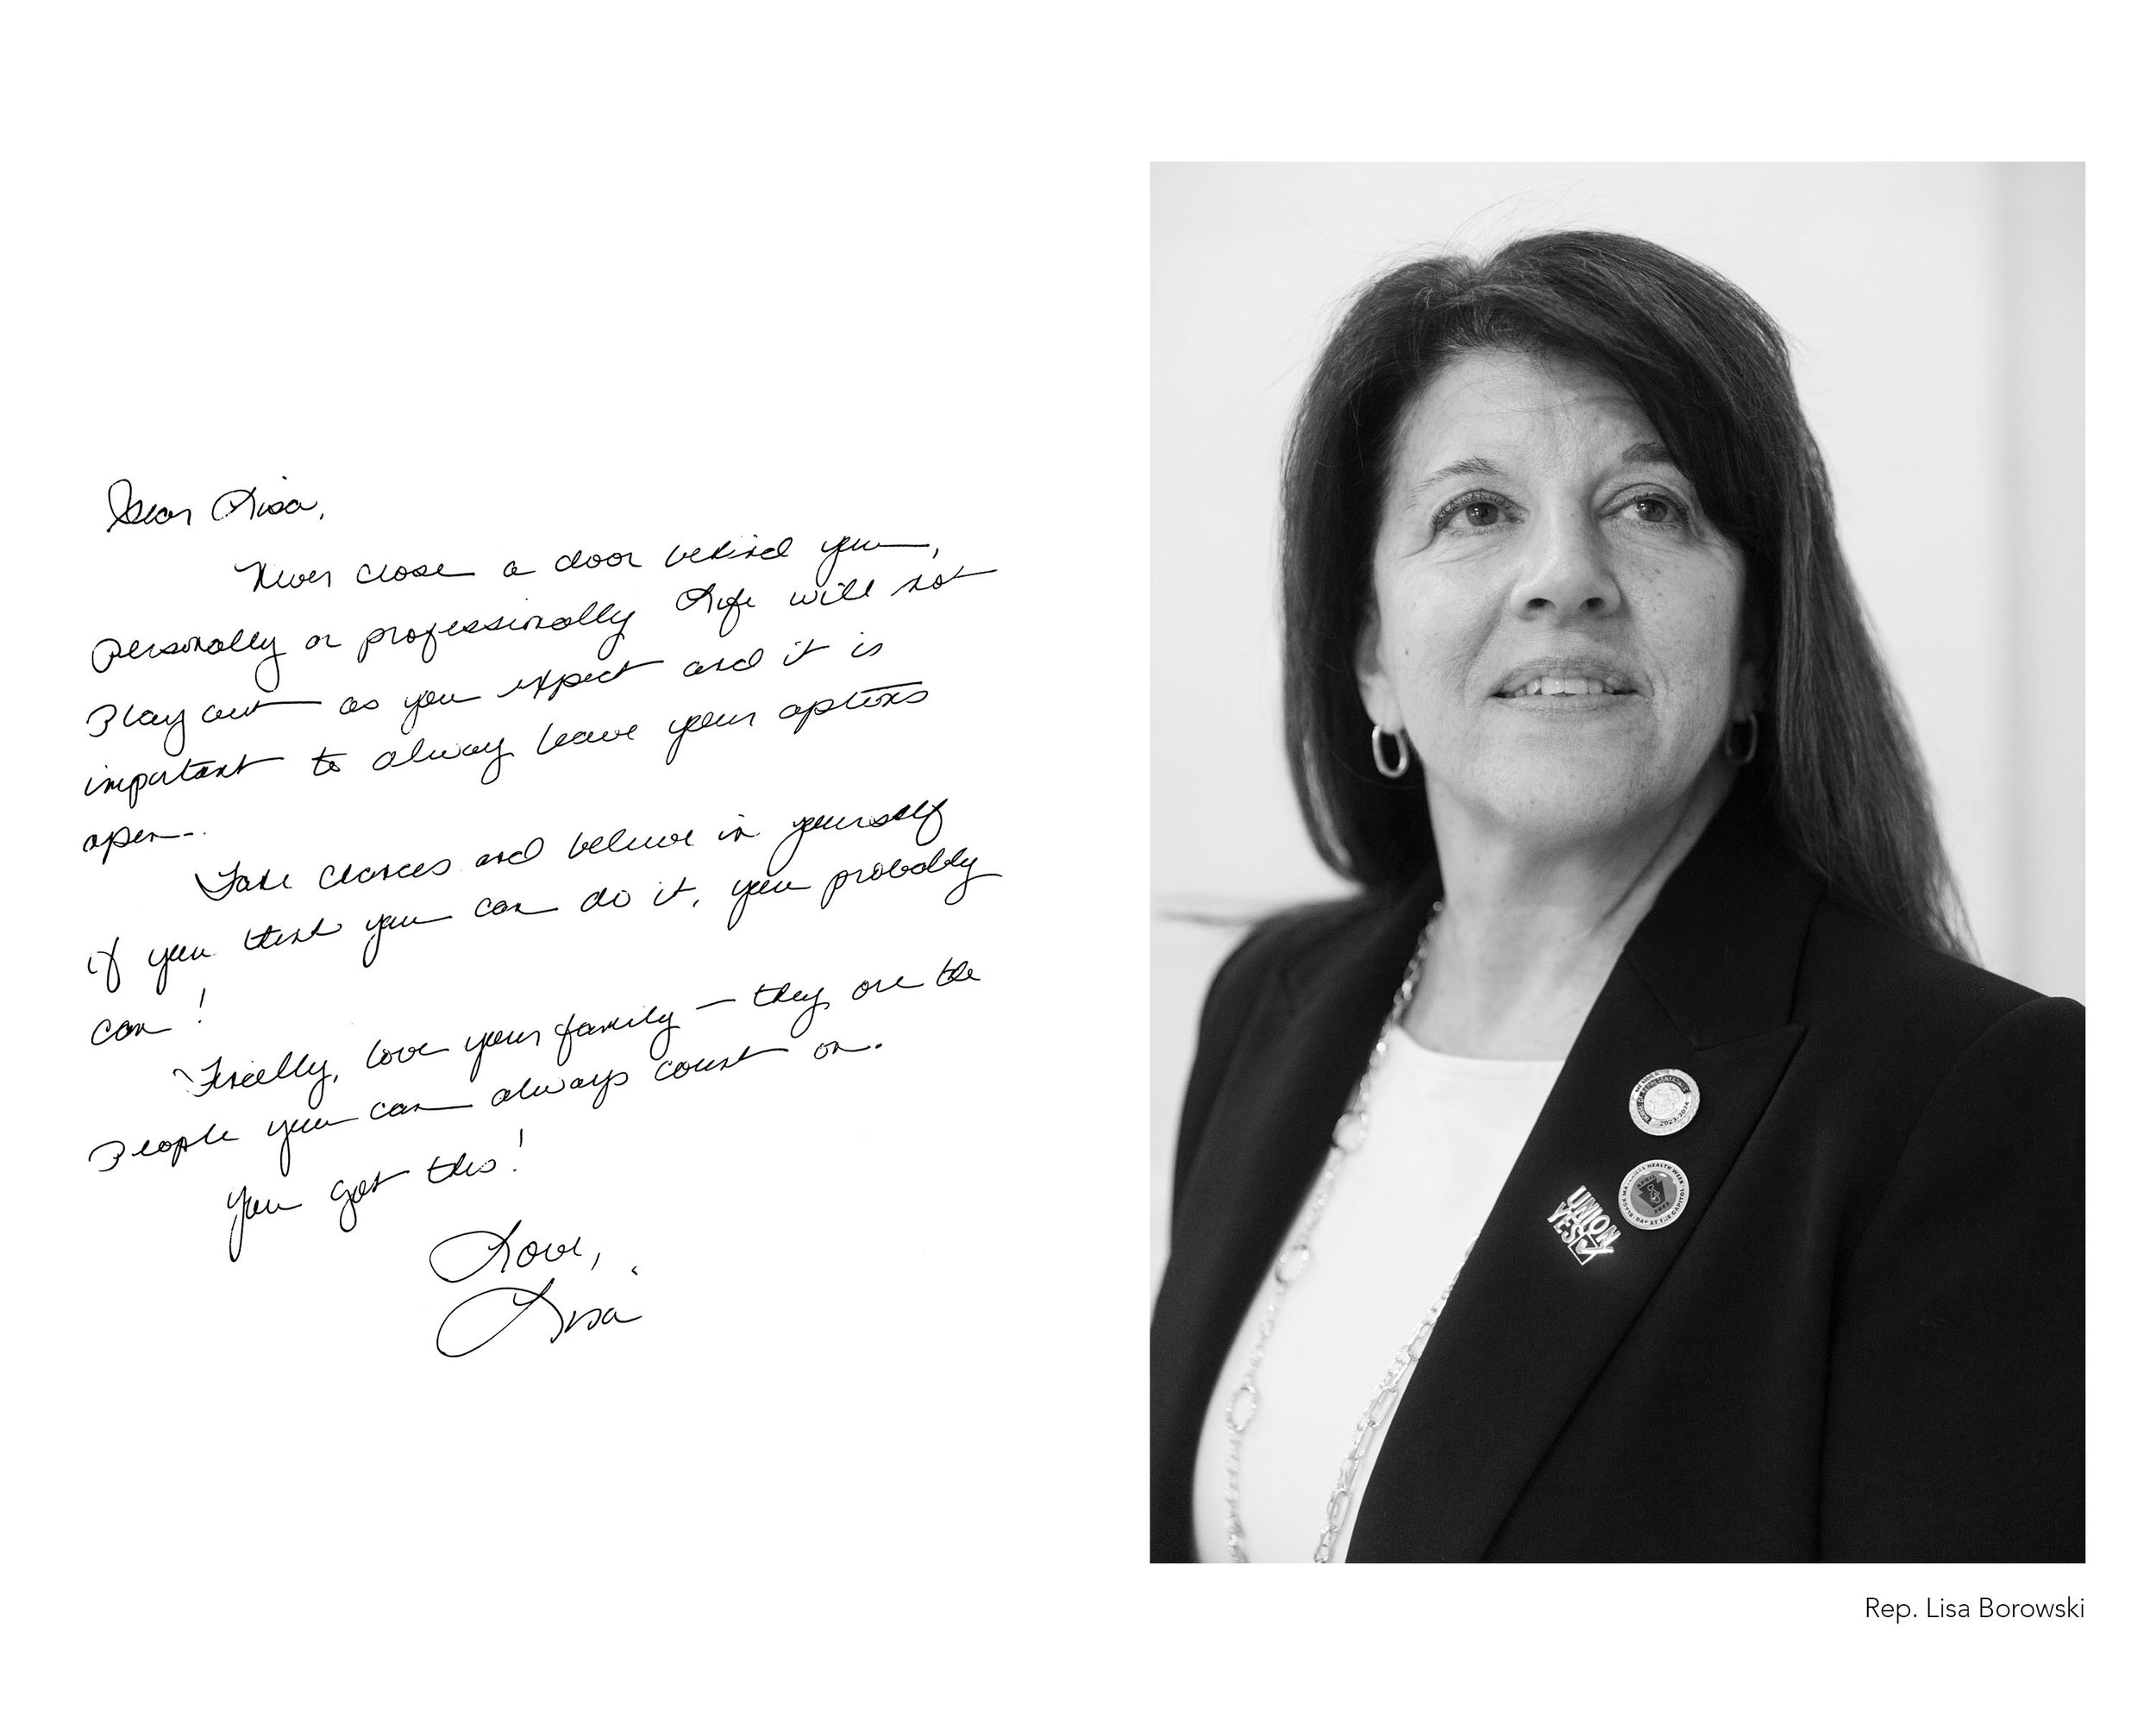 Dear Lisa,
Never close a door behind you,
personally or professionally Life will not
play out as you expect and it is
important to always leave your options
open..
Take chances and believe in yourself
if you think you can do it, you probably
can!
Finally, love your family — they are the
people you can always count on.
You got this!
Love,
Lisa
MEMBER
HOUSE OF REPRESENTATIVES
2023-2024
HEALTH WEEK
DAY AT THE CAPITOL
UNION
YES
Rep. Lisa Borowski